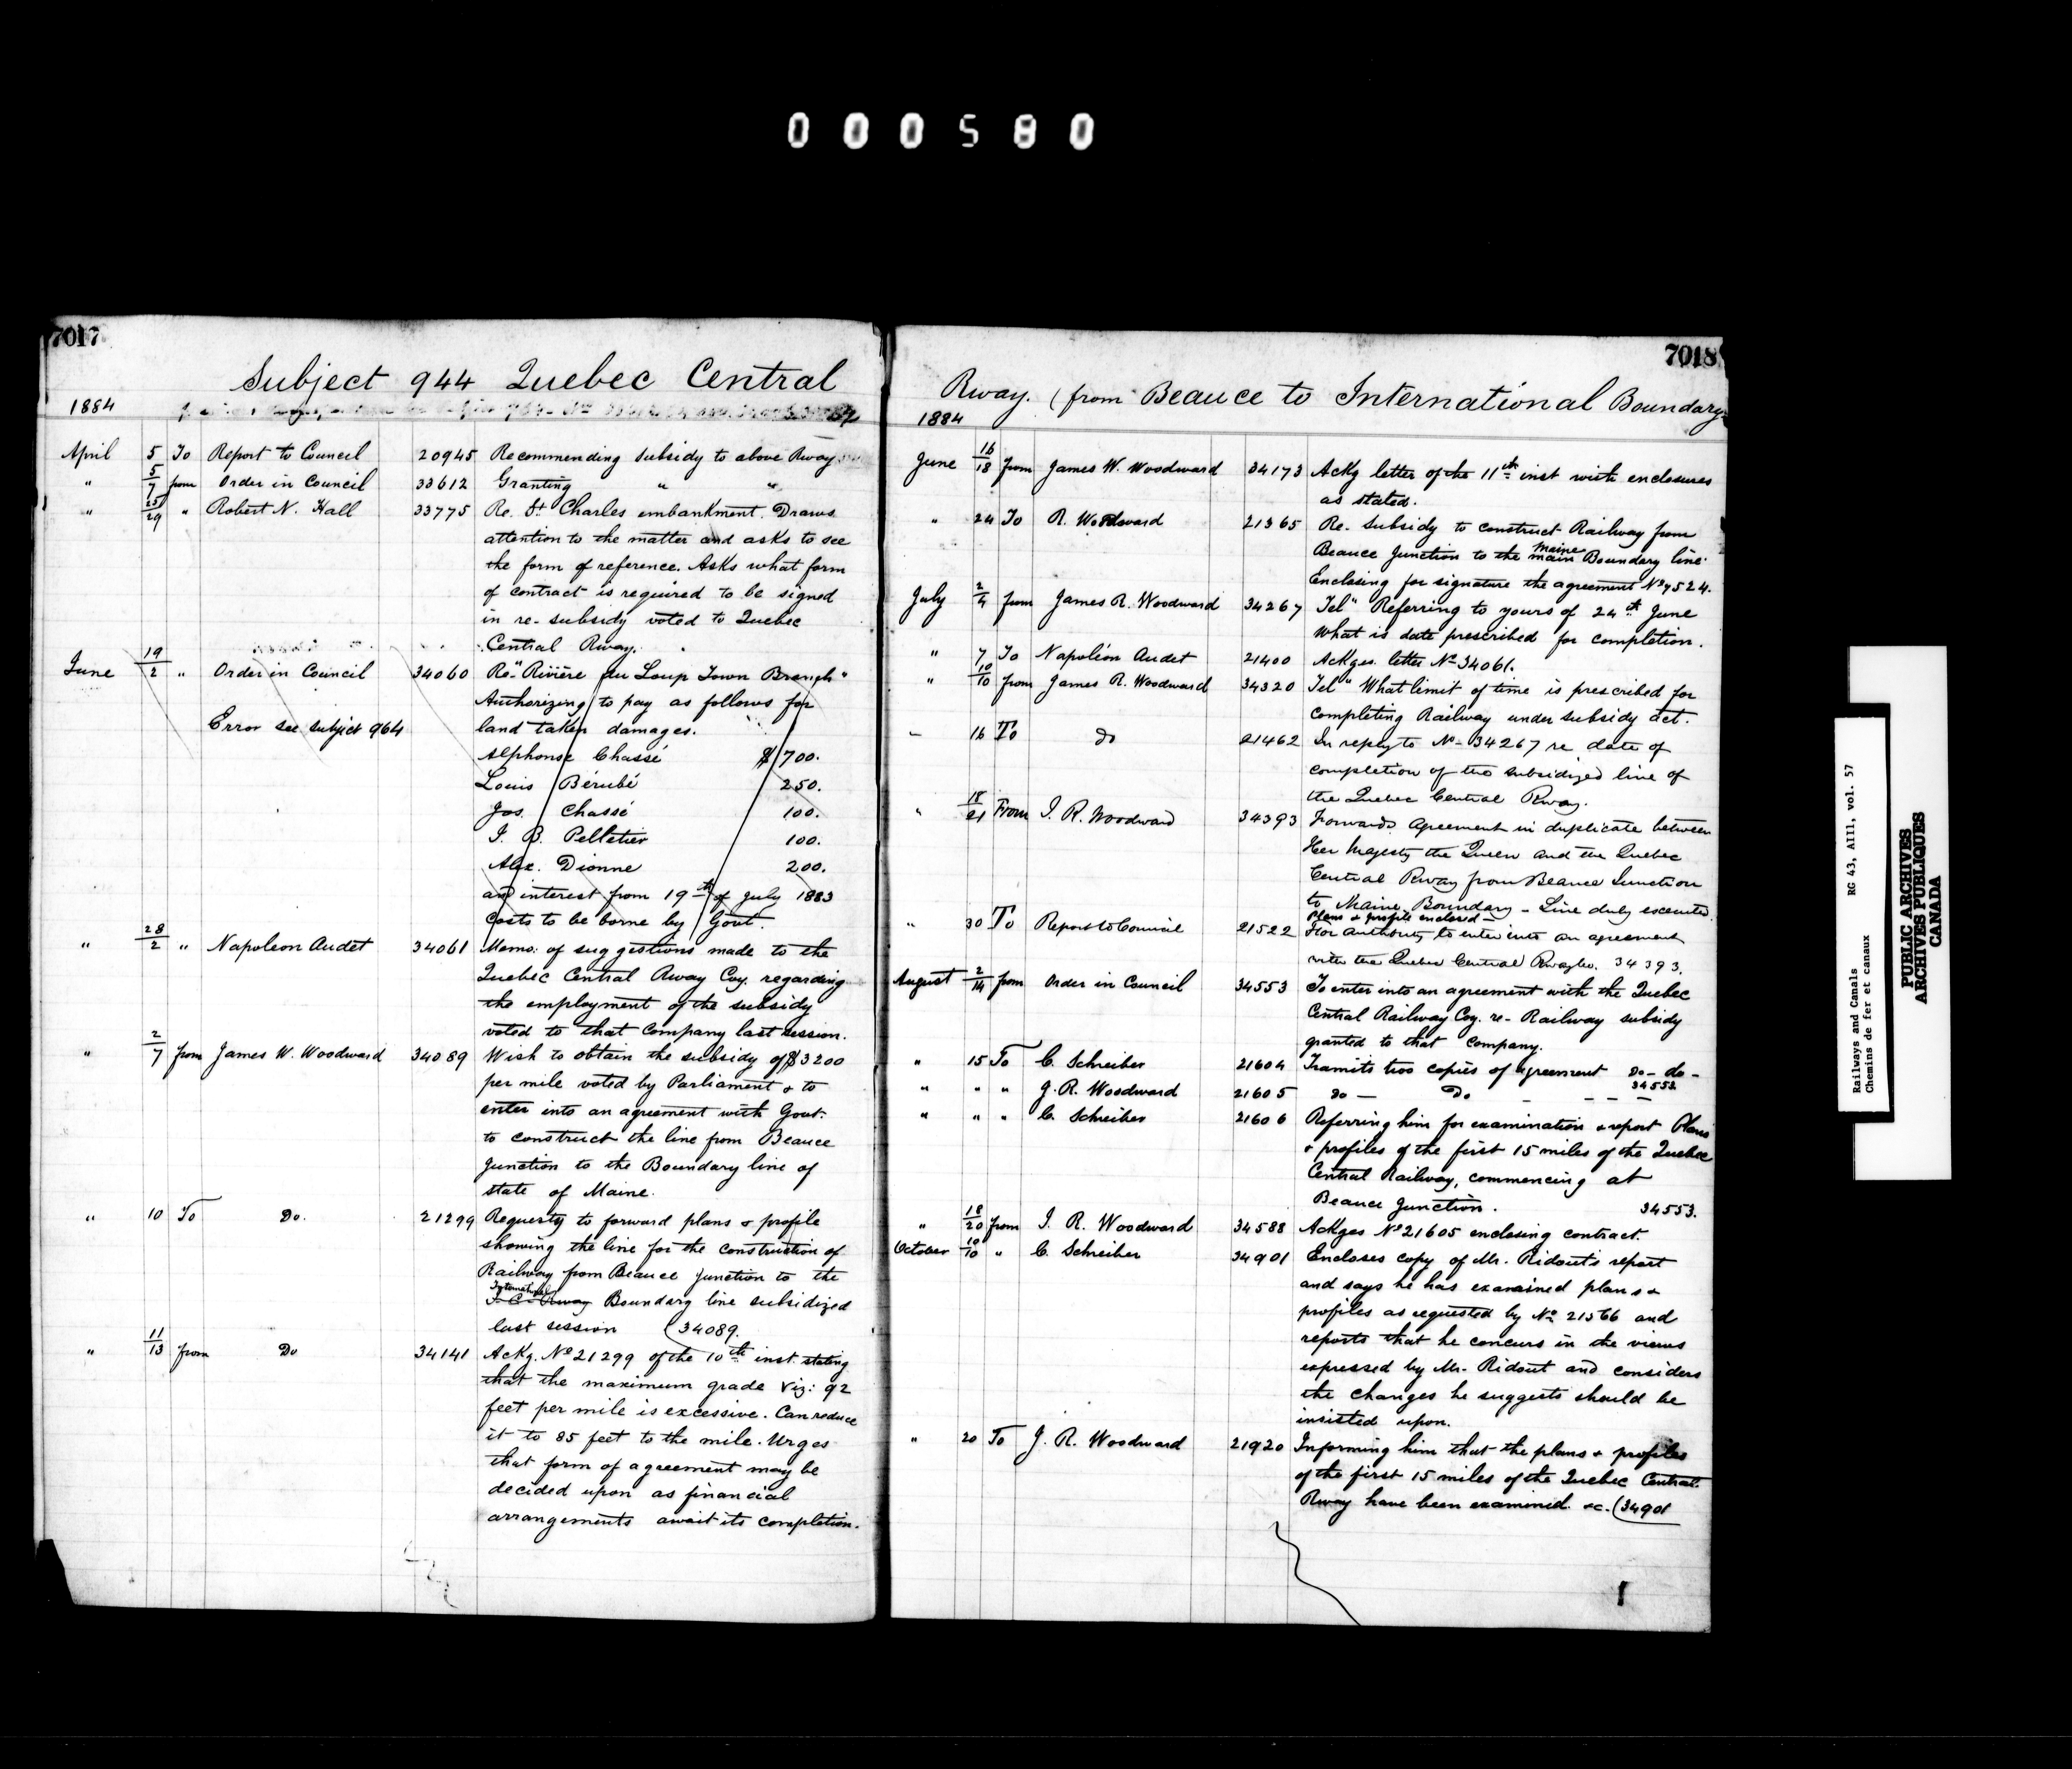 000580
7017
Subject 944 Quebec Central
1884
April 5 To Report to Council 20945 Recommending subsidy to above Rway
" 5/7 from Order in Council 33612 Granting " "
" 25/29 " Robert N. Hall 33775 Re. St Charles embankment. Draws
attention to the matter and asks to see
the form of reference. Asks what form
of contract is required to be signed
in re-subsidy voted to Quebec
Central Rway.
June 19/2 " Order in Council 34060 Re "Rivière du Loup Town Branch"
Authorizing to pay as follows for
Error see subject 964 land taken damages.
Alphonse Chassé $700.
Louis Bérubé 250.
Jos. Chassé 100.
J. B. Pelletier 100.
Alex. Dionne 200.
and interest from 19th of July 1883
Costs to be borne by Govt.
" 28/2 " Napoleon Audet 34061 Memo: of suggestions made to the
Quebec Central Rway Coy. regarding
the employment of the subsidy
voted to that Company last session.
" 2/7 from James W. Woodward 34089 Wish to obtain the subsidy of $3200
per mile voted by Parliament & to
enter into an agreement with Govt.
to construct the line from Beauce
Junction to the Boundary line of
state of Maine.
" 10 To Do. 21299 Requests to forward plans & profile
showing the line for the construction of
Railway from Beauce Junction to the
International
I. C. Rway Boundary line subsidized
last session (34089.
" 11/13 from Do 34141 Ackg. No 21299 of the 10th inst. stating
that the maximum grade viz: 92
feet per mile is excessive. Can reduce
it to 85 feet to the mile. Urges
that form of agreement may be
decided upon as financial
arrangements await its completion.
7018
Rway. (from Beauce to International Boundary
1884
June 16/18 from James W. Woodward 34173 Ackg letter of the 11th inst with enclosures
as stated.
" 24 To R. Woodward 21365 Re. Subsidy to construct Railway from
Maine
Beauce Junction to the main Boundary line.
Enclosing for signature the agreement No 7524.
July 2/4 from James R. Woodward 34267 Tel" Referring to yours of 24th June
What is date prescribed for completion.
" 7 To Napoléon Audet 21400 Ackges letter No 34061.
" 10/10 from James R. Woodward 34320 Tel" What limit of time is prescribed for
completing Railway under subsidy act.
" 16 To do 21462 In reply to No 34267 re date of
completion of the subsidized line of
the Quebec Central Rway.
" 18/21 From J. R. Woodward 34393 Forwards agreement in duplicate between
Her Majesty the Queen and the Quebec
Central Rway from Beauce Junction
to Maine Boundary - Line duly executed
Plans & profile enclosed -
" 30 To Report to Council 21522 For authority to enter into an agreement
with the Quebec Central Rwayco. 34393.
August 2/14 from Order in Council 34553 To enter into an agreement with the Quebec
Central Railway Coy. re- Railway subsidy
granted to that Company.
" 15 To C. Schreiber 21604 Transmits two copies of agreement do - do -
34553
" " " J. R. Woodward 21605 do - Do - - - -
" " " C. Schreiber 21606 Referring him for examination & report Plans
& profiles of the first 15 miles of the Quebec
Central Railway, commencing at
Beauce Junction. 34553.
" 18/20 from J. R. Woodward 34588 Ackges No 21605 enclosing contract.
October 10/10 " C. Schreiber 34901 Encloses copy of Mr. Ridout's report
and says he has examined plans &
profiles as requested by No 21566 and
reports that he concurs in the views
expressed by Mr. Ridout and considers
the changes he suggests should be
insisted upon.
" 20 To J. R. Woodward 21920 Informing him that the plans & profiles
of the first 15 miles of the Quebec Central
Rway have been examined. &c. (34901
Railways and Canals RG 43, AIII, vol. 57
Chemins de fer et canaux
PUBLIC ARCHIVES
ARCHIVES PUBLIQUES
CANADA